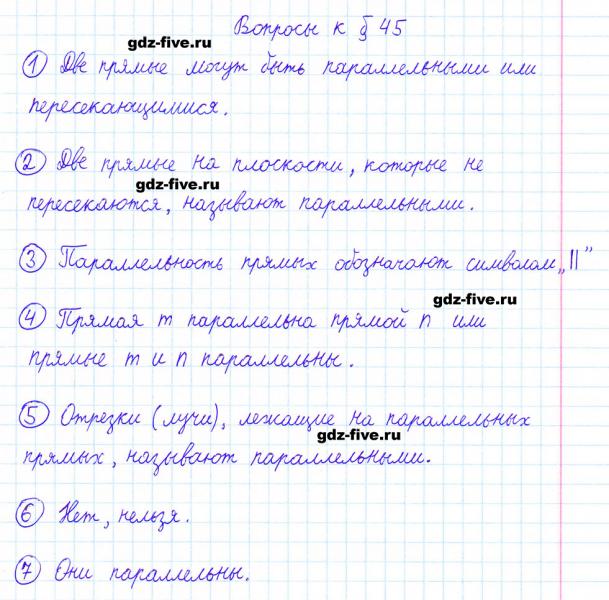 Вопросы к § 45
gdz-five.ru
1 Две прямые могут быть параллельными или
пересекающимися.
2 Две прямые на плоскости, которые не
gdz-five.ru
пересекаются, называют параллельными.
3 Параллельность прямых обозначают символом „||”
gdz-five.ru
4 Прямая m параллельна прямой n или
прямые m и n параллельны.
5 Отрезки (лучи), лежащие на параллельных
gdz-five.ru
прямых, называют параллельными.
6 Нет, нельзя.
7 Они параллельны.